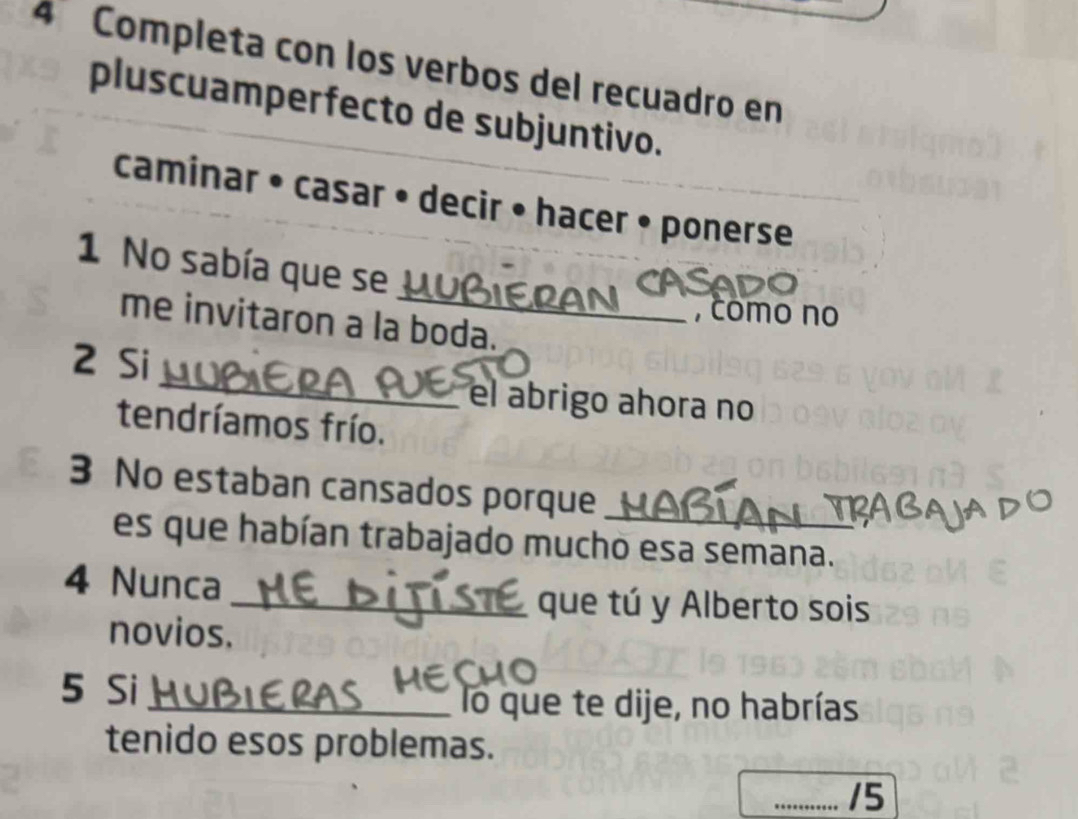 4 Completa con los verbos del recuadro en
pluscuamperfecto de subjuntivo.
caminar • casar • decir • hacer • ponerse
1 No sabía que se HUBIERAN CASADO, como no
me invitaron a la boda.
2 Si HUBIERA PUESTO el abrigo ahora no
tendríamos frío.
3 No estaban cansados porque HABÍAN TRABAJADO
es que habían trabajado mucho esa semana.
4 Nunca ME DIJISTE que tú y Alberto sois
novios.
5 Si HUBIERAS HECHO lo que te dije, no habrías
tenido esos problemas.
........... /5